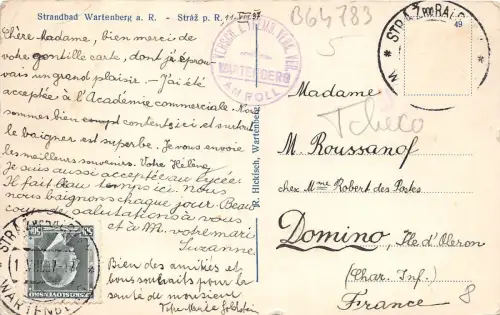 Strandbad Wartenberg a. R. - Stráž p. R. 11. VIII 37
Chère Madame, bien merci de
votre gentille carte, dont j'éprou-
vais un grand plaisir. - J'ai été
acceptée à l'Academie commerciale. Nous
sommes bien contents ici et surtout
le baigner est superbe. Je vous envoie
les meilleurs souvenirs. Votre Hélène
Je suis aussi acceptée au lycée.
Il fait beau temps ici. Nous
nous baignons chaque jour. Beau-
coup de salutations à vous
et à M. votre mari
Suzanne
Bien des amitiés et
bons souhaits pour la
santé de monsieur
WARTENBERG
AM ROLL
R. Hickisch, Wartenberg
B64783
5
STRÁŽ POD RALSKEM
49
Madame
Tcheco
M. Roussanof
chez Mme Robert des Postes
Domino, Ile d'Oleron
(Char. Inf.)
France
8
STRÁŽ
WARTENBERG
ČESKOSLOVENSKO
50